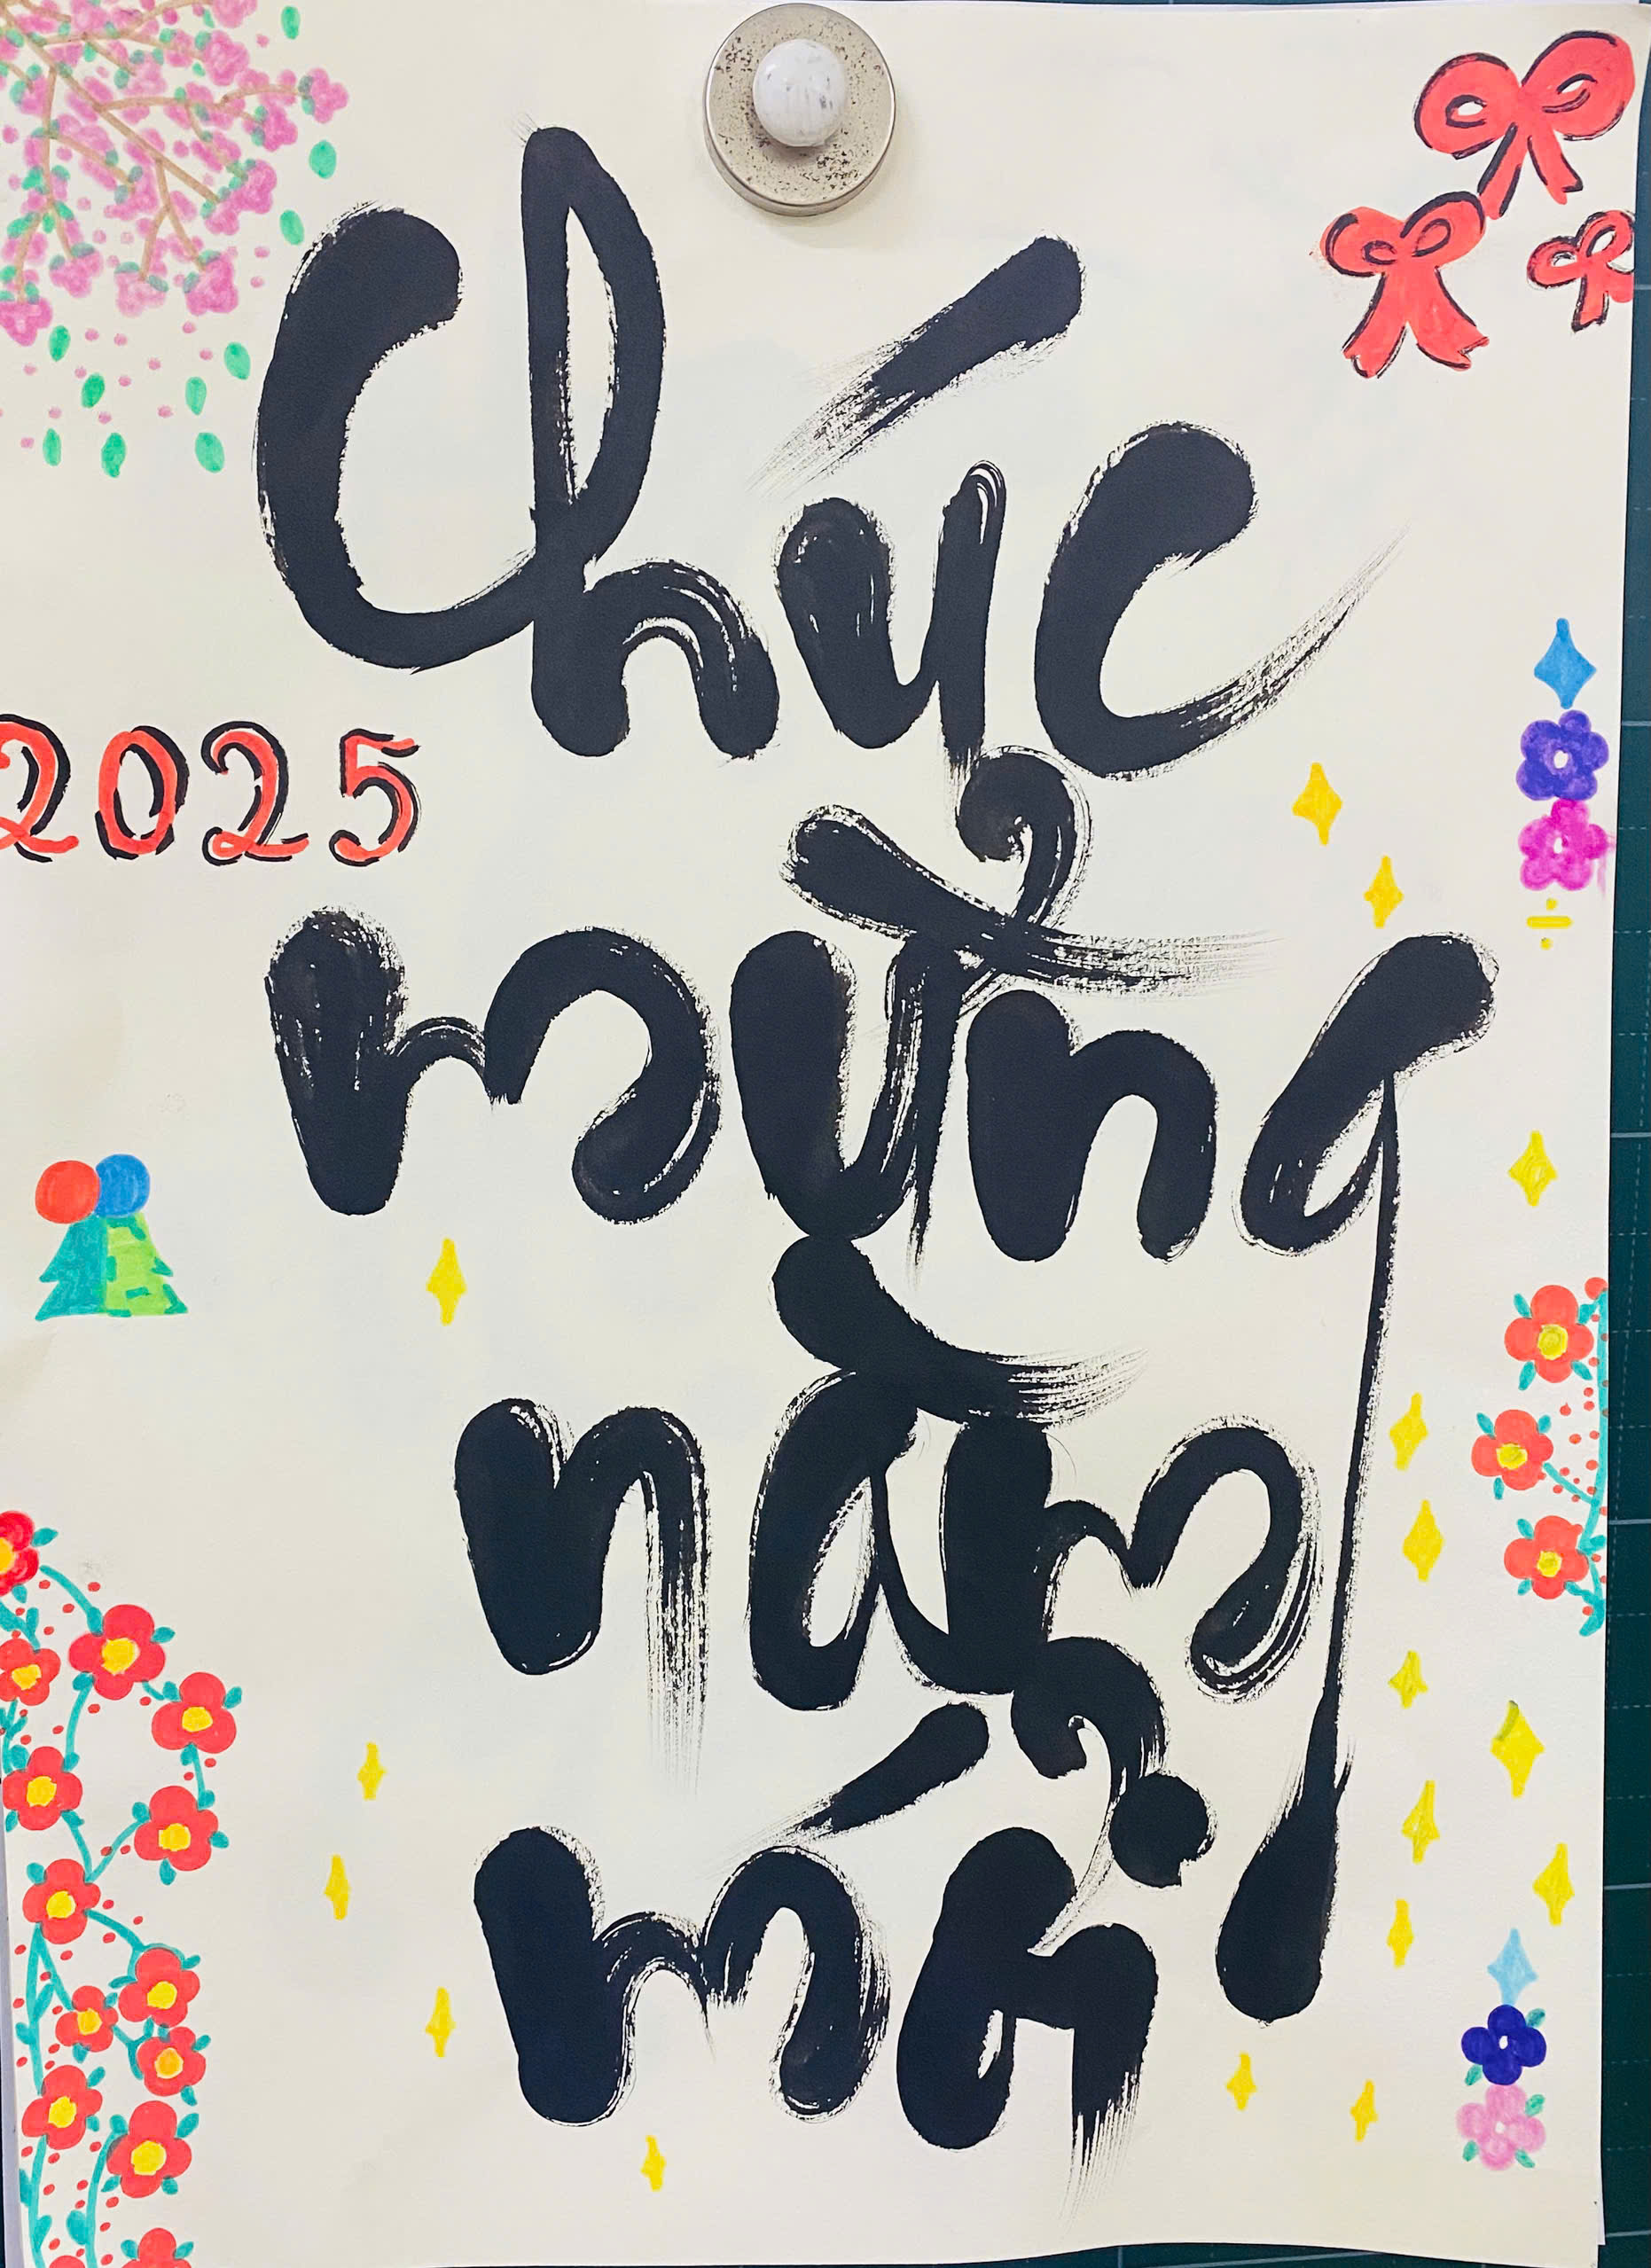 Chúc
2025
mừng
năm
mới